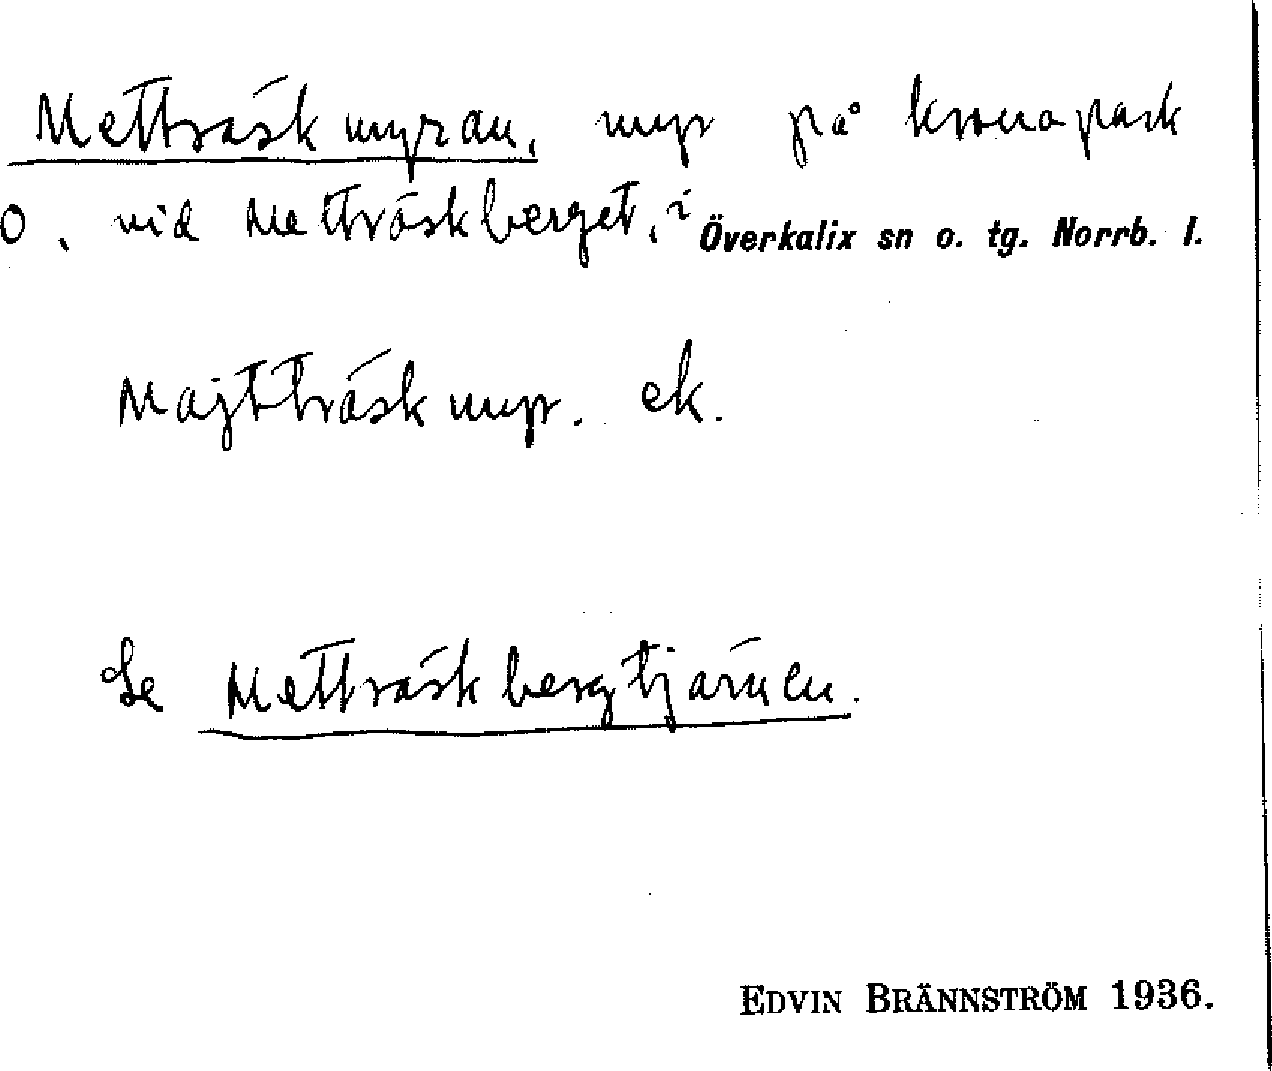 Metträskmyran, myr på kronopark
O, vid Metträskberget, i Överkalix sn o. tg. Norrb. l.
Majtträskmyr. ek.
Se Metträskbergtjärnen.
EDVIN BRÄNNSTRÖM 1936.